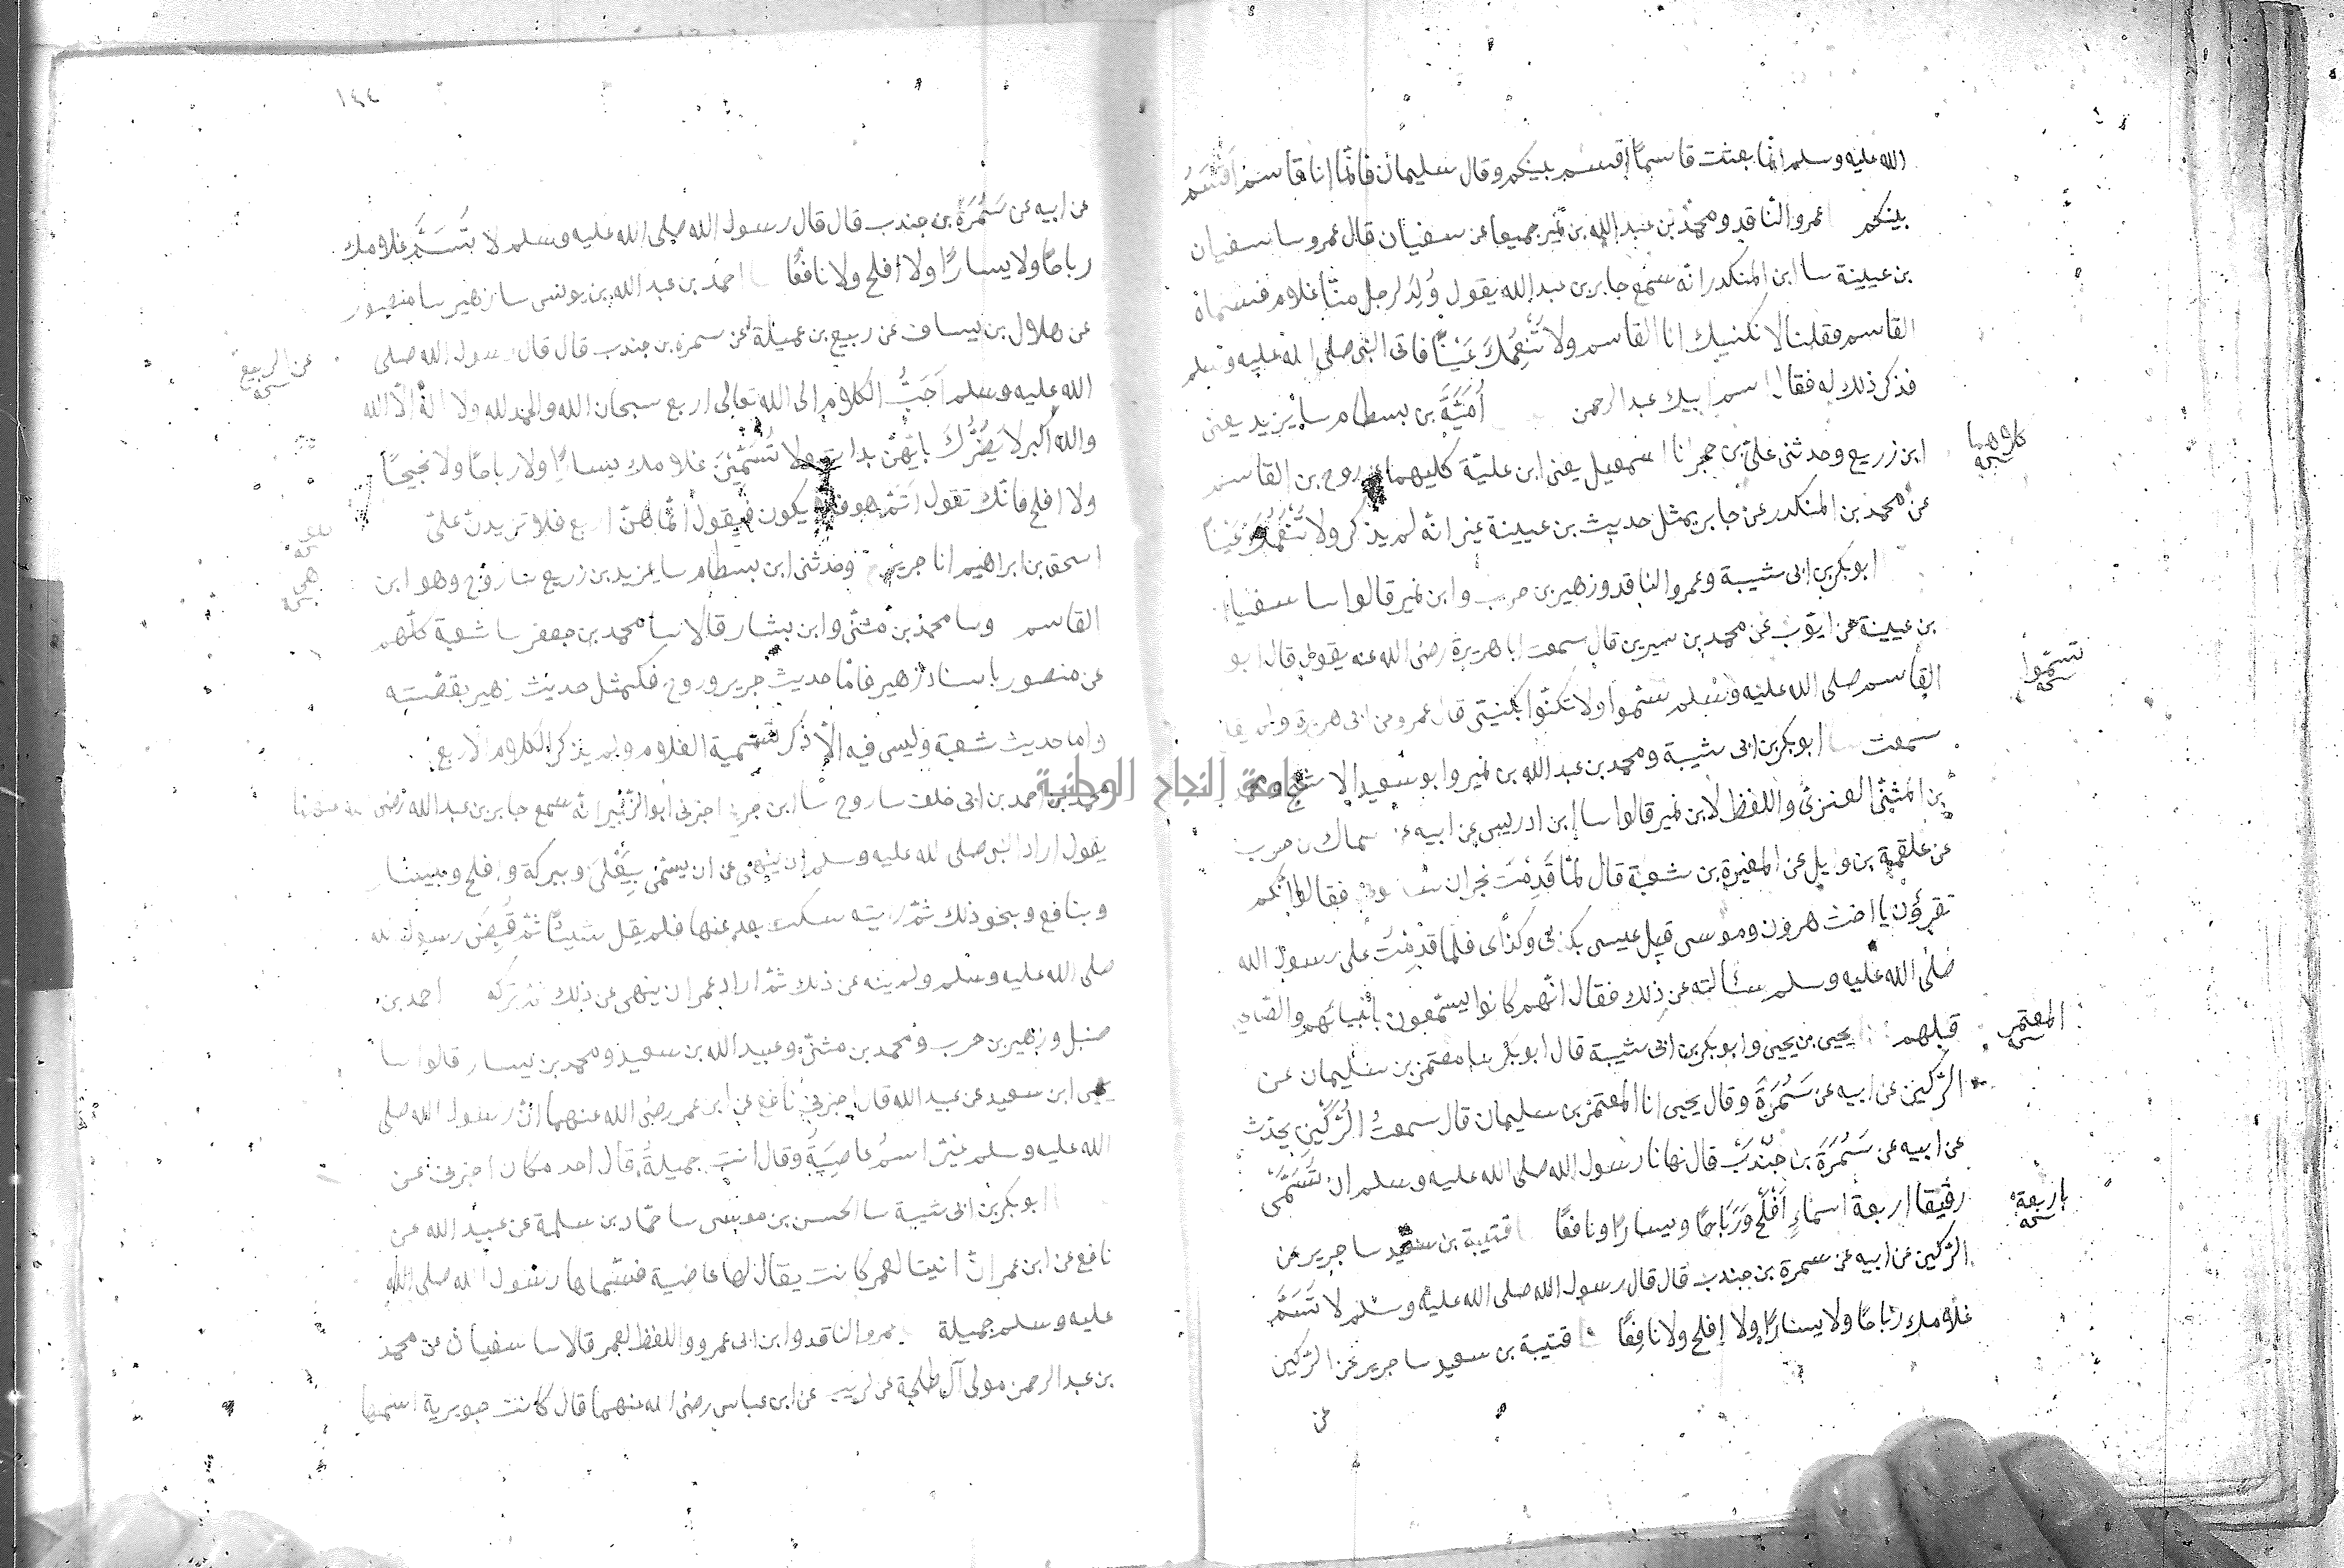 الله عليه وسلم انما بعثت قاسما اقسم بينكم وقال سليمان فانما انا قاسم اقسم
بينكم عمرو الناقد ومحمد بن عبد الله بن نمير جميعا عن سفيان قال عمرو سا سفيان
بن عيينة سا ابن المنكدر انه سمع جابر بن عبد الله يقول وُلِدَ لرجل منا غلام فسماه
القاسم فقلنا لا نكنيك ابا القاسم ولا نُنْعِمُكَ عَيْنًا فاتى النبى صلى الله عليه وسلم
فذكر ذلك له فقال اسم ابنك عبد الرحمن أُمَيَّةُ بن بسطام سا يزيد يعنى
كلاهما نسخة
ابن زريع وحدثنى على بن حجر انا اسمعيل يعنى ابن علية كليهما عن روح بن القاسم
عن محمد بن المنكدر عن جابر بمثل حديث بن عيينة غير انه لم يذكر ولا نُنْعِمُكَ عَيْنًا
ابو بكر بن ابى شيبة وعمرو الناقد وزهير بن حرب وابن نمير قالوا سا سفيان
بن عيينة عن ايوب عن محمد بن سيرين قال سمعت ابا هريرة رضى الله عنه يقول قال ابو
تسمّوا نسخة
القاسم صلى الله عليه وسلم سموا ولا تكنوا بكنيتى قال عمرو عن ابى هريرة ولم يقل
سمعت سا ابو بكر بن ابى شيبة ومحمد بن عبد الله بن نمير وابو سعيد الاشج ومحمد
بن المثنى العنزى واللفظ لابن نمير قالوا سا ابن ادريس عن ابيه عن سماك بن حرب
عن علقمة بن وايل عن المغيرة بن شعبة قال لما قَدِمْتُ نجران سالونى فقالوا انكم
تقرؤن يا اخت هرون وموسى قبل عيسى بكذى وكذا فلما قدمت على رسول الله
صلى الله عليه وسلم سالته عن ذلك فقال انهم كانوا يسمون بانبيائهم والصالحين
المعتمر نسخة
قبلهم يحيى بن يحيى وابو بكر بن ابى شيبة قال ابو بكر سا معتمر بن سليمان عن
الركين عن ابيه عن سَمُرَةَ وقال يحيى انا المعتمر بن سليمان قال سمعت الرُّكَيْن يحدث
عن ابيه عن سَمُرَةَ بن جُنْدَبْ قال نهانا رسول الله صلى الله عليه وسلم ان نُسَمِّى
باربعة نسخة
رقيقا اربعة اسماءٍ أَفْلَحَ وَرَبَاحًا ويسارًا ونافعًا قتيبة بن سعيد سا جرير عن
الركين عن ابيه عن سمرة بن جندب قال قال رسول الله صلى الله عليه وسلم لا تُسَمِّ
غلامك رباحًا ولا يسارًا ولا افلح ولا نافعًا قتيبة بن سعيد سا جرير عن الركين
عن
١٤٤
عن ابيه عن سَمُرَةَ بن جندب قال قال رسول الله صلى الله عليه وسلم لا تُسَمِّ غلامك
رباحًا ولا يسارًا ولا افلح ولا نافعًا احمد بن عبد الله بن يونس سا زهير سا منصور
عن هلال بن يساف عن ربيع بن عميلة عن سمرة بن جندب قال قال رسول الله صلى
عن الربيع نسخة
الله عليه وسلم اَحَبُّ الكلام الى الله تعالى اربع سبحان الله والحمد لله ولا اله الا الله
والله اكبر لا يَضُرُّكَ بايهن بدات ولا تُسَمِّيَنَّ غلامك يسارًا ولا رباحًا ولا نجيحًا
ولا افلح فانك تقول اَثَمَّ هو فلا يكون فيقول لا انما هن اربع فلا تزيدن على
هى نسخة
اسحق بن ابراهيم انا جرير وحدثنى ابن بسطام سا يزيد بن زريع سا روح وهو ابن
القاسم وسا محمد بن مثنى وابن بشار قالا سا محمد بن جعفر سا شعبة كلهم
عن منصور باسناد زهير فاما حديث جرير وروح فكمثل حديث زهير بقصته
واما حديث شعبة فليس فيه الا ذكر تسمية الغلام ولم يذكر الكلام الاربع
محمد بن احمد بن ابى خلف سا روح سا ابن جريج اخبرنى ابو الزبير انه سمع جابر بن عبد الله رضى الله عنهما
يقول اراد النبى صلى الله عليه وسلم ان ينهى عن ان يسمى بِيَعْلَى وببركة وافلح وبيسار
وبنافع وبنحو ذلك ثم رايته سكت بعد عنها فلم يقل شيئًا ثم قُبِضَ رسول الله
صلى الله عليه وسلم ولم ينه عن ذلك ثم اراد عمر ان ينهى عن ذلك ثم تركه احمد بن
حنبل وزهير بن حرب ومحمد بن مثنى وعبيد الله بن سعيد ومحمد بن يسار قالوا سا
يحيى ابن سعيد عن عبيد الله قال اخبرنى نافع عن ابن عمر رضى الله عنهما ان رسول الله صلى
الله عليه وسلم غير اسم عاصية وقال انتِ جميلة قال احمد مكان اخبرنى عن
ابو بكر بن ابى شيبة سا الحسن بن موسى سا حماد بن سلمة عن عبيد الله عن
نافع عن ابن عمر ان ابنتا لعمر كانت يقال لها عاصية فسماها رسول الله صلى الله
عليه وسلم جميلة عمرو الناقد وابن ابى عمرو واللفظ لعمر قالا سا سفيان عن محمد
بن عبد الرحمن مولى آل طلحة عن كريب عن ابن عباس رضى الله عنهما قال كانت جويرية اسمها
جامعة النجاح الوطنية